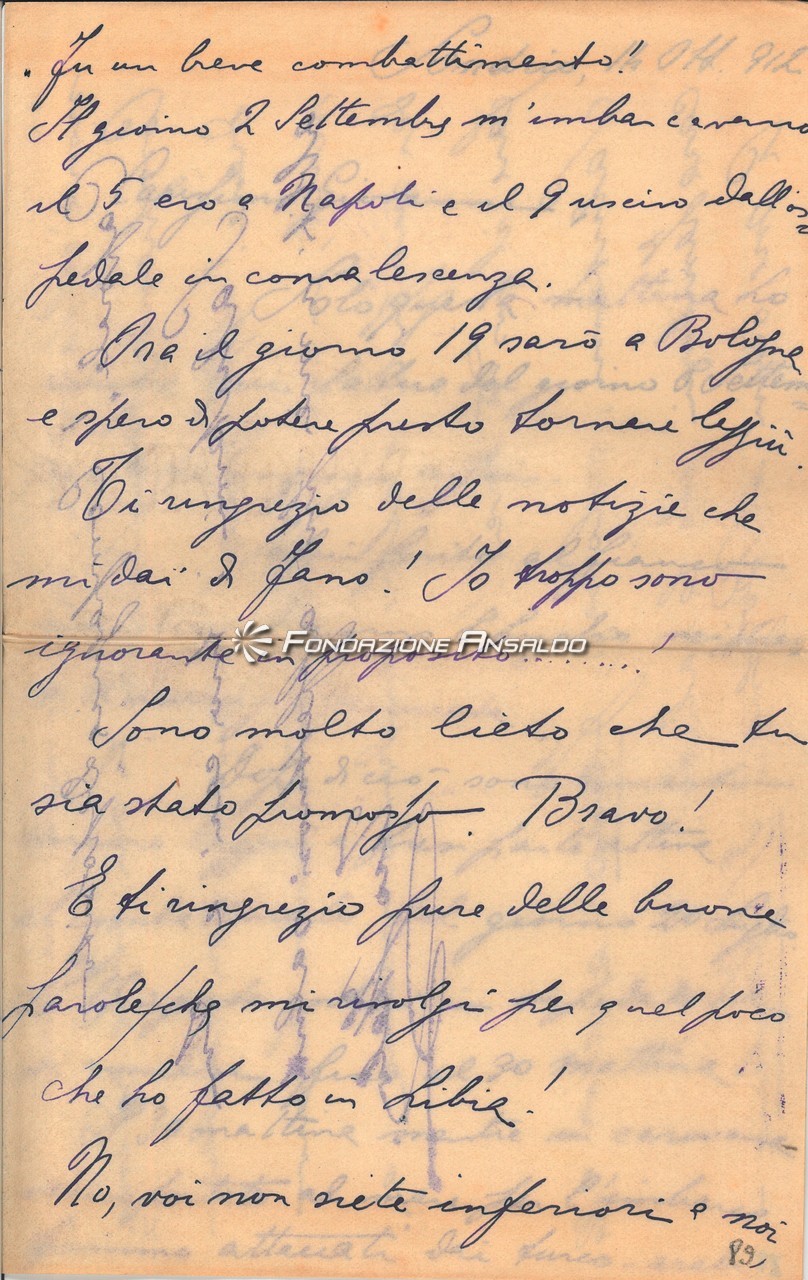 „Fu un breve combattimento!
Il giorno 2 Settembre m'imbarcavano
il 5 ero a Napoli e il 9 uscivo dall'os=
pedale in convalescenza.
Ora il giorno 19 sarò a Bologna
e spero di potere presto tornare laggiù.
Ti ringrazio delle notizie che
mi dai di Fano! Io troppo sono
ignorante in proposito.........!
FONDAZIONE ANSALDO
Sono molto lieto che tu
sia stato promosso. Bravo!
E ti ringrazio pure delle buone
parole che mi rivolgi per quel poco
che ho fatto in Libia!
No, voi non siete inferiori a noi
89